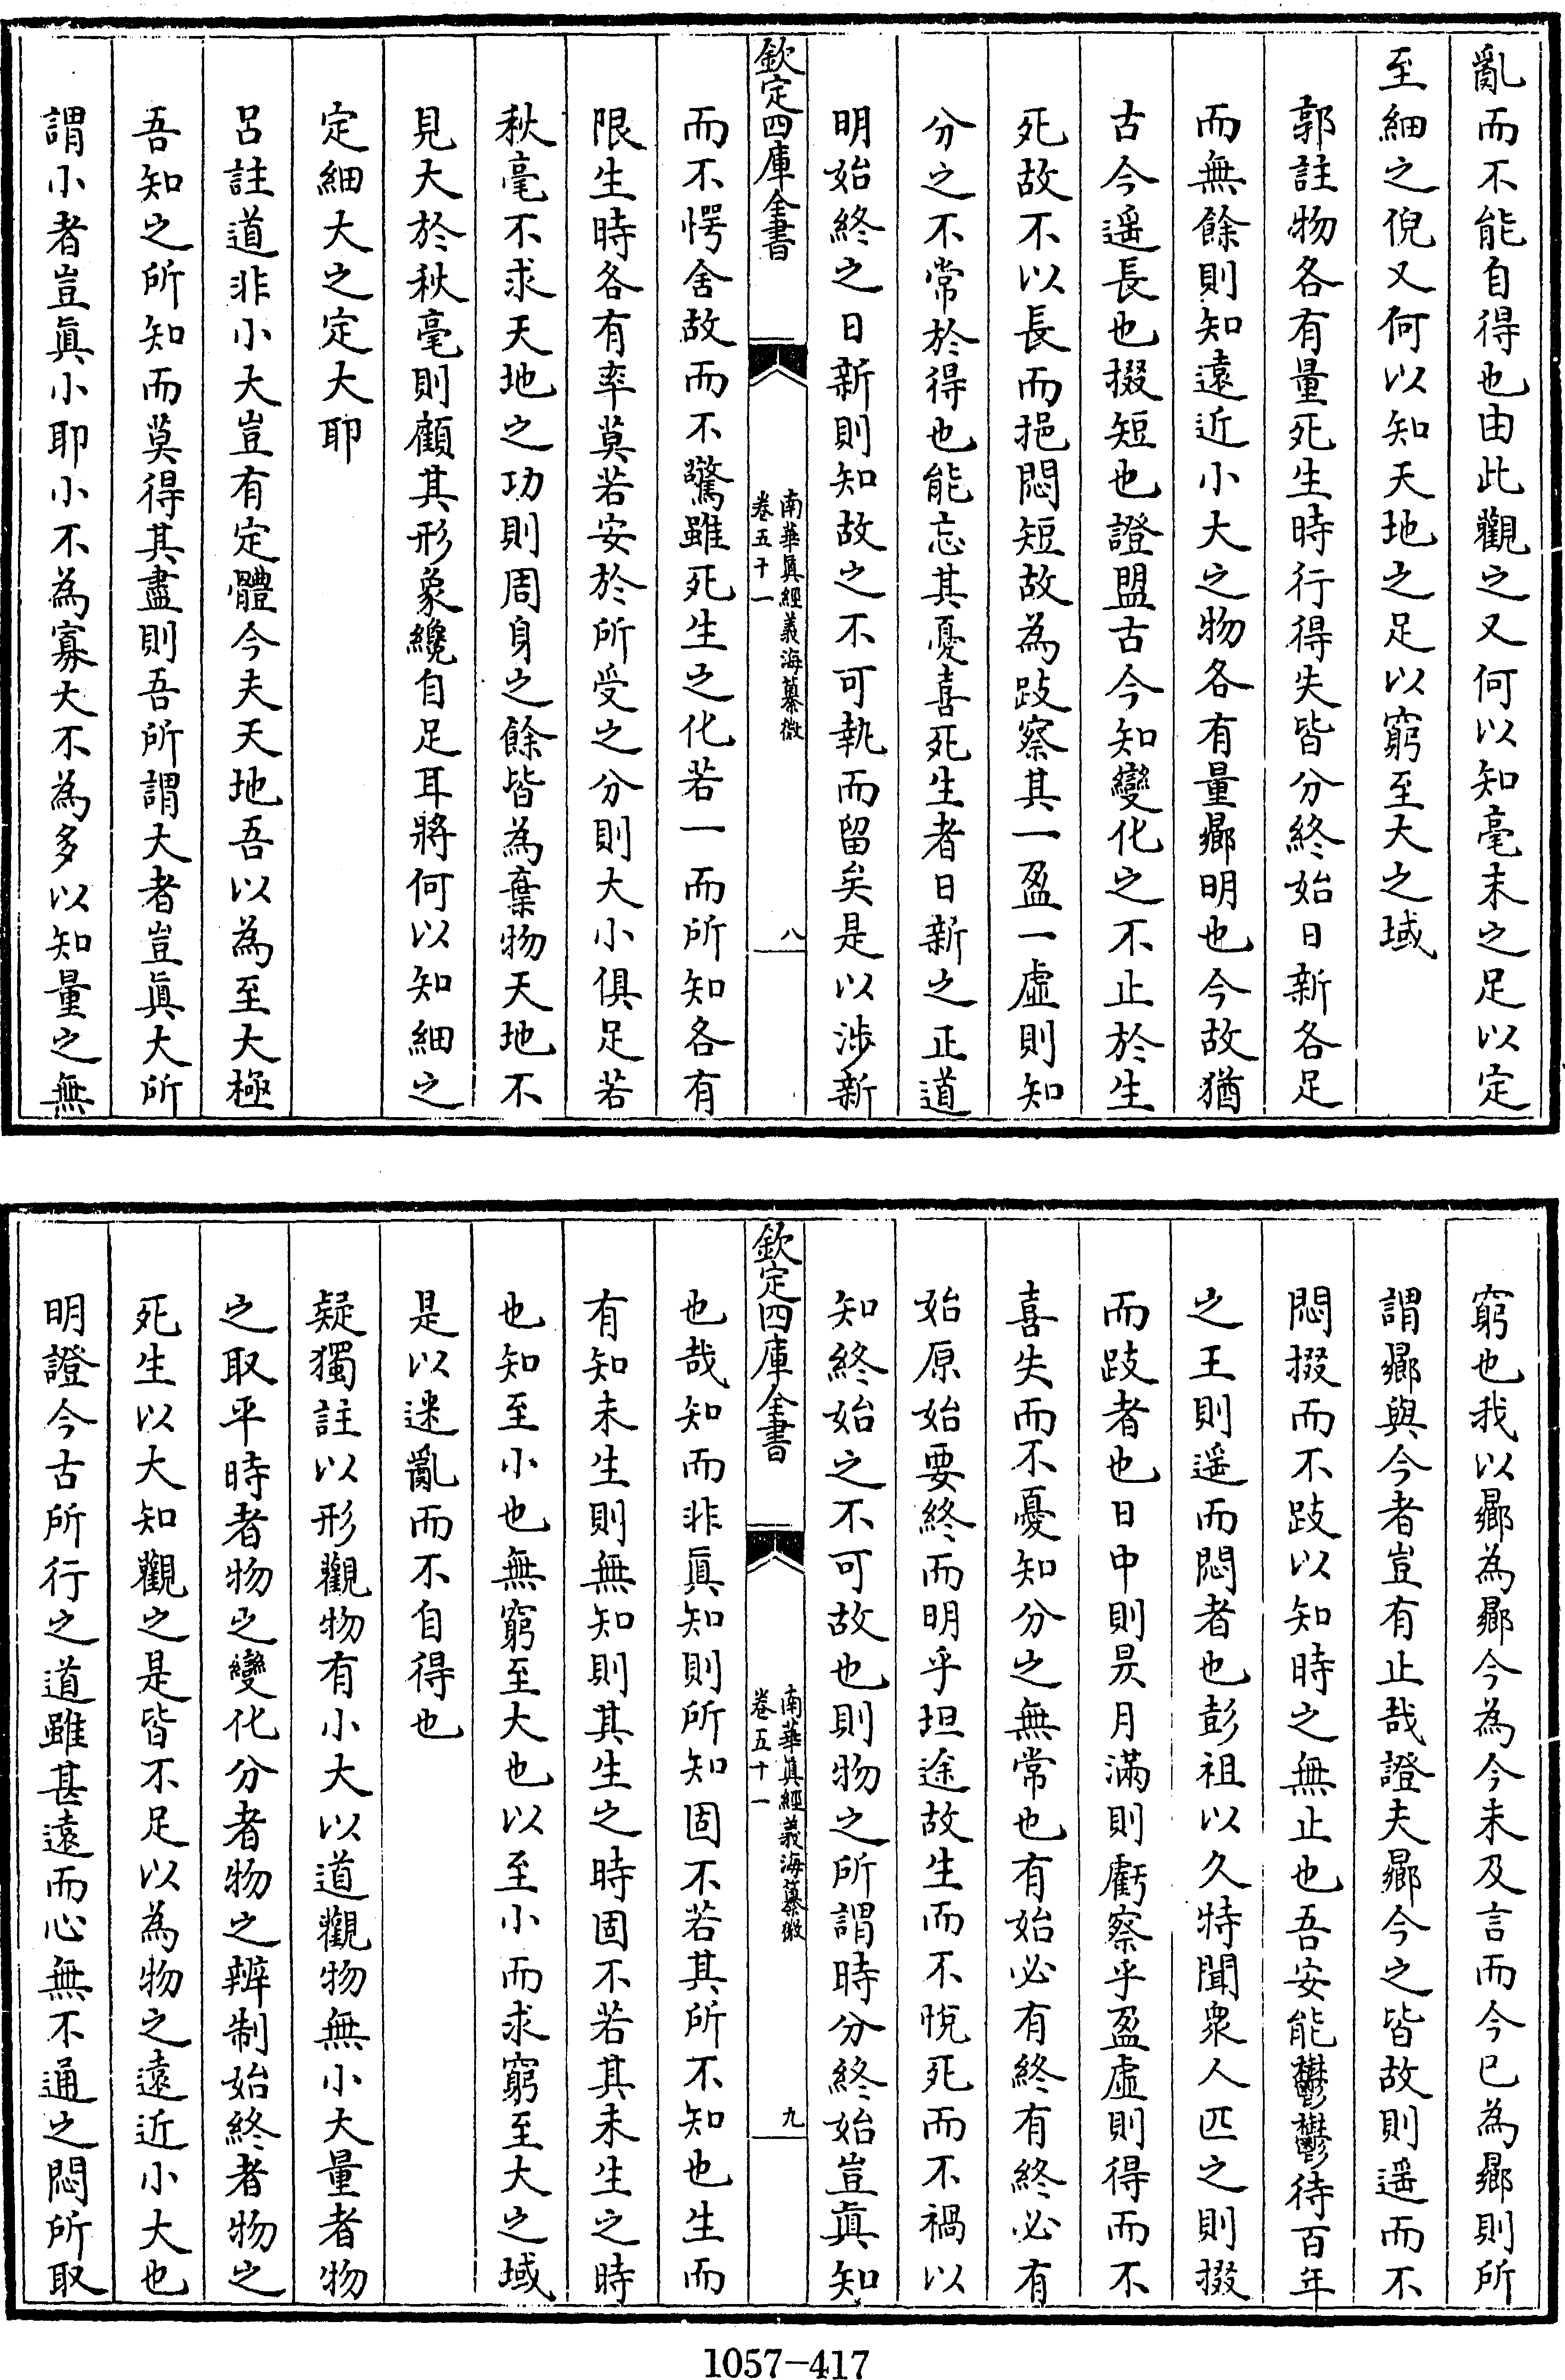 亂而不能自得也由此觀之又何以知毫末之足以定
至細之倪又何以知天地之足以窮至大之域
郭註物各有量死生時行得失皆分終始日新各足
而無餘則知遠近小大之物各有量曏明也今故猶
古今遥長也掇短也證曏古今知變化之不止於生
死故不以長而悒悶短故為跂察其一盈一虛則知
分之不常於得也能忘其憂喜死生者日新之正道
明始終之日新則知故之不可執而留矣是以涉新
欽定四庫全書
南華真經義海纂微
卷五十一
八
而不愕舍故而不驚雖死生之化若一而所知各有
限生時各有率莫若安於所受之分則大小俱足若
秋毫不求天地之功則周身之餘皆為棄物天地不
見大於秋毫則顧其形象纔自足耳將何以知細之
定細大之定大耶
呂註道非小大豈有定體今夫天地吾以為至大極
吾知之所知而莫得其盡則吾所謂大者豈真大所
謂小者豈真小耶小不為寡大不為多以知量之無
窮也我以曏為曏今為今未及言而今已為曏則所
謂曏與今者豈有止哉證夫曏今之皆故則遥而不
悶掇而不跂以知時之無止也吾安能鬱鬱待百年
之王則遥而悶者也彭祖以久特聞衆人匹之則掇
而跂者也日中則昃月滿則虧察乎盈虛則得而不
喜失而不憂知分之無常也有始必有終有終必有
始原始要終而明乎坦途故生而不悅死而不禍以
知終始之不可故也則物之所謂時分終始豈真知
欽定四庫全書
南華真經義海纂微
卷五十一
九
也哉知而非真知則所知固不若其所不知也生而
有知未生則無知則其生之時固不若其未生之時
也知至小也無窮至大也以至小而求窮至大之域
是以迷亂而不自得也
疑獨註以形觀物有小大以道觀物無小大量者物
之取平時者物之變化分者物之辨制始終者物之
死生以大知觀之是皆不足以為物之遠近小大也
明證今古所行之道雖甚遠而心無不通之悶所取
1057-417